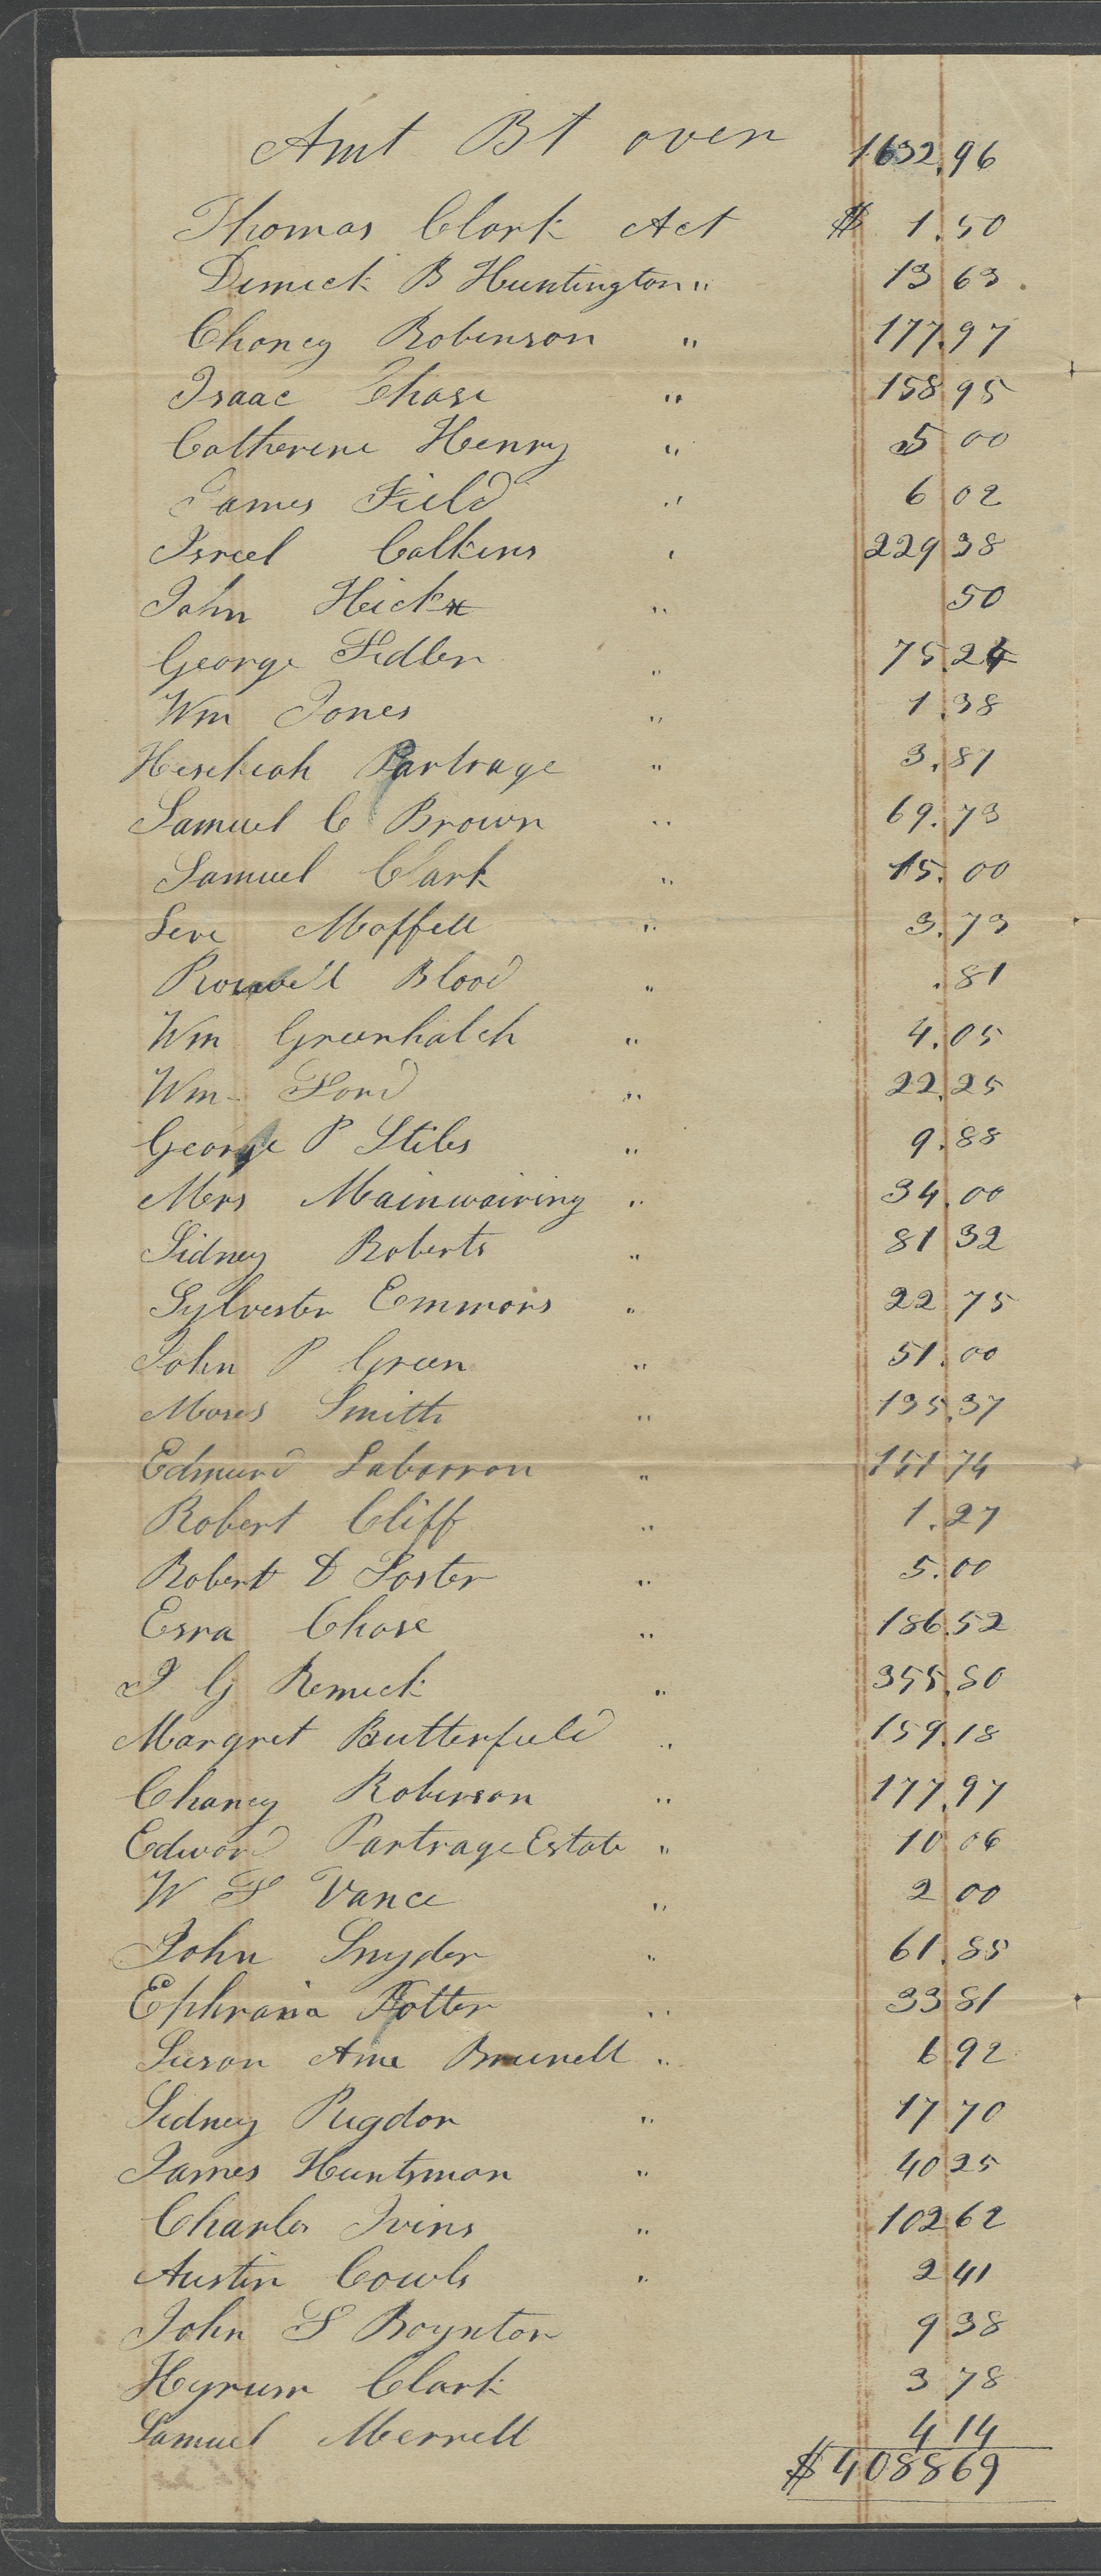 Amt Bt over 1632.96
Thomas Clark Act $ 1.50
Dimick B Huntington " 13 63
Chancy Robinson " 177.97
Isaac Chase " 158 95
Catherine Henry " 5 00
James Field " 6 02
Isreel Calkins " 229 38
John Hicks " 50
George Fidler " 75.24
Wm Jones " 1.38
Hesekeah Partrage " 3.87
Samuel C Brown " 69.73
Samuel Clark " 15.00
Leve Moffell " 3.73
Roswell Blood " .81
Wm Greenhalch " 4.05
Wm Ford " 22.25
George P Stiles " 9.88
Mrs Mainwairing " 34.00
Sidney Roberts " 81 32
Sylvester Emmons " 22 75
John P Green " 51.00
Moses Smith " 135.37
Edmund Labarron " 151 74
Robert Cliff " 1.27
Robert D Foster " 5.00
Esra Chase " 186.52
J G Remick " 355.80
Margret Butterfield " 159.18
Chancy Robinson " 177.97
Edward Partrage Estate " 10 06
W F Vance " 2 00
John Snyder " 61.85
Ephraim Potter " 33 81
Susan Ame Brunell " 6 92
Sidney Pugdor " 17 70
James Huntsman " 40 25
Charles Ivins " 102 62
Austin Cowls " 2 41
John F Boynton 9 38
Hyrum Clark 3 78
Samuel Merrell 4 14
$ 4088 69